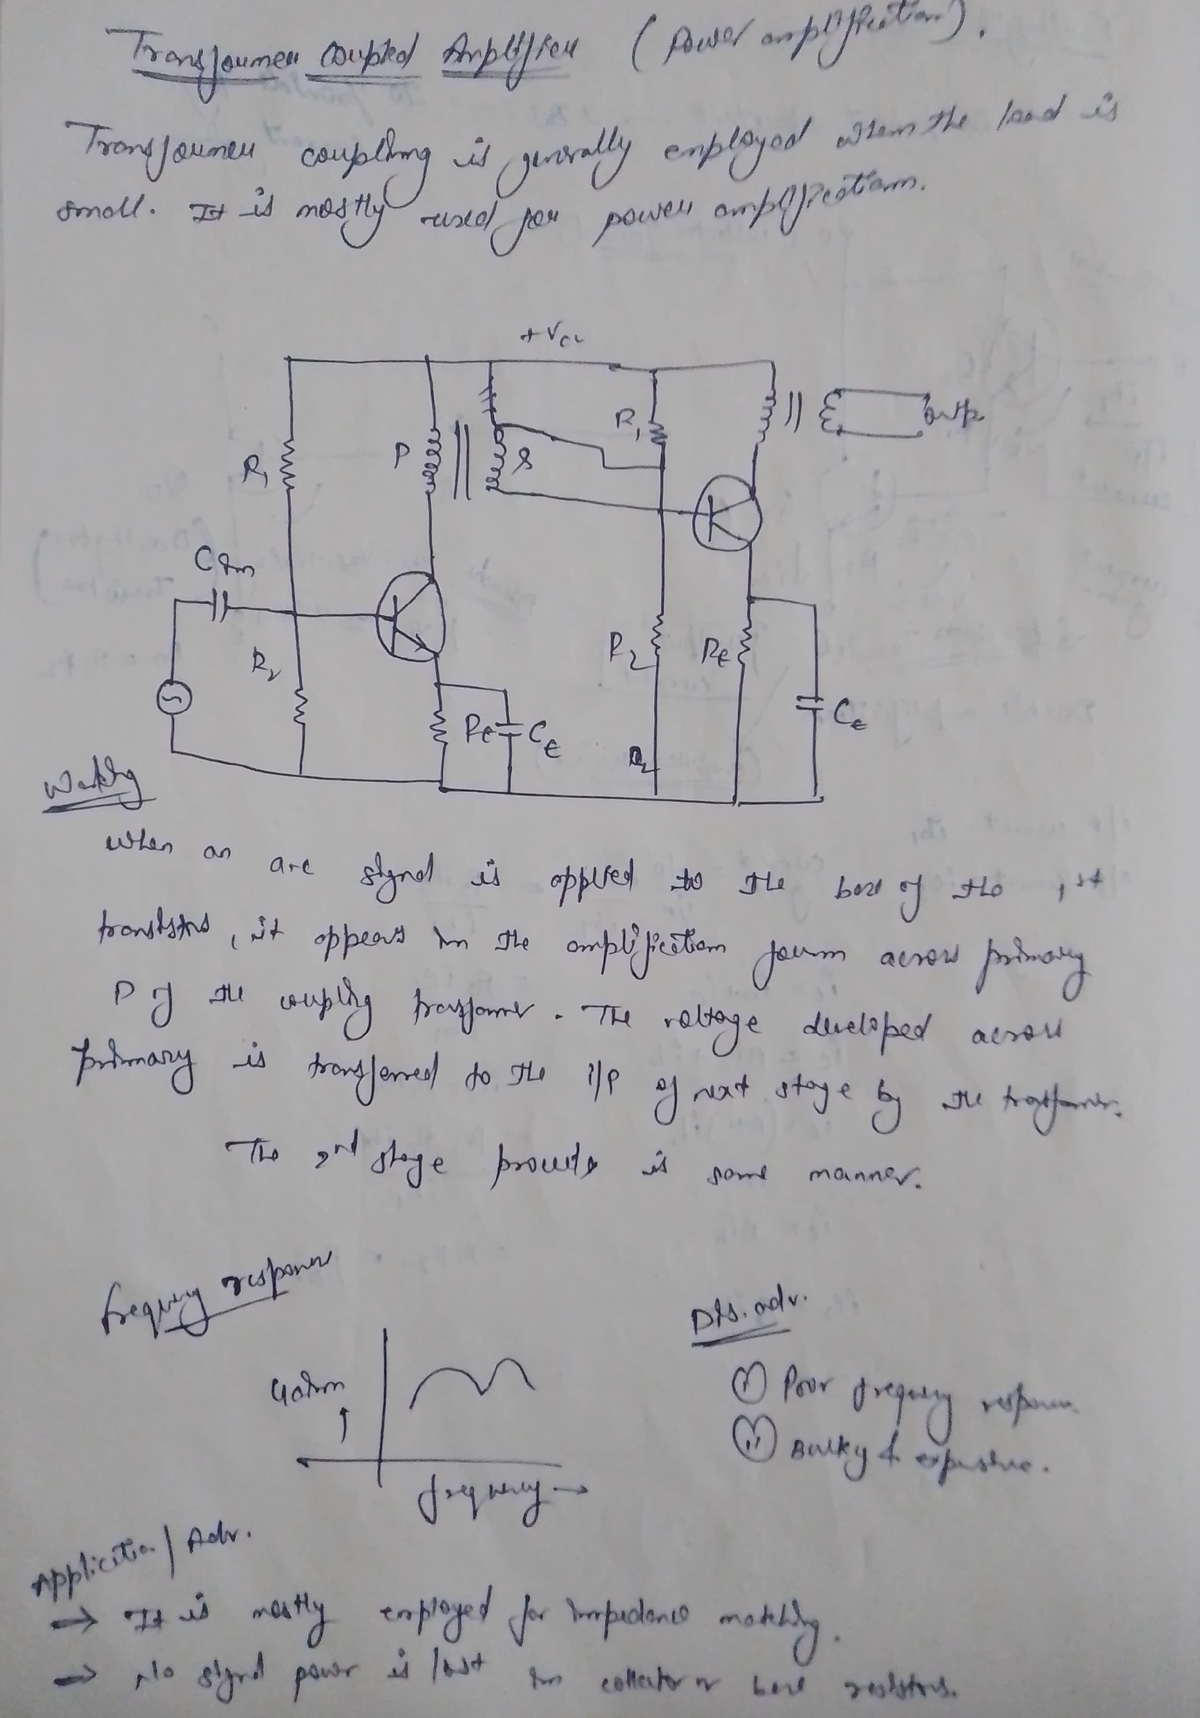 Transformer Coupled Amplifier (Power amplification).
Transformer coupling is generally employed when the load is
small. It is mostly used for power amplification.
+Vcc
R1
P
S
R1
outp
C
R2
R2
RE
RE
CE
CE
R2
Working
When an a.c signal is applied to the base of the 1st
transistors, it appears in the amplification form across primary
P of the coupling transformer. The voltage developed across
primary is transferred to the i/p of next stage by the transformer.
The 2nd stage is same manner.
frequency response
Gain
frequency →
Dis. adv.
(i) Poor frequency response.
(ii) Bulky & expensive.
Application / Adv.
→ It is mostly employed for impedance matching.
→ No signal power is lost in collector or base resistors.